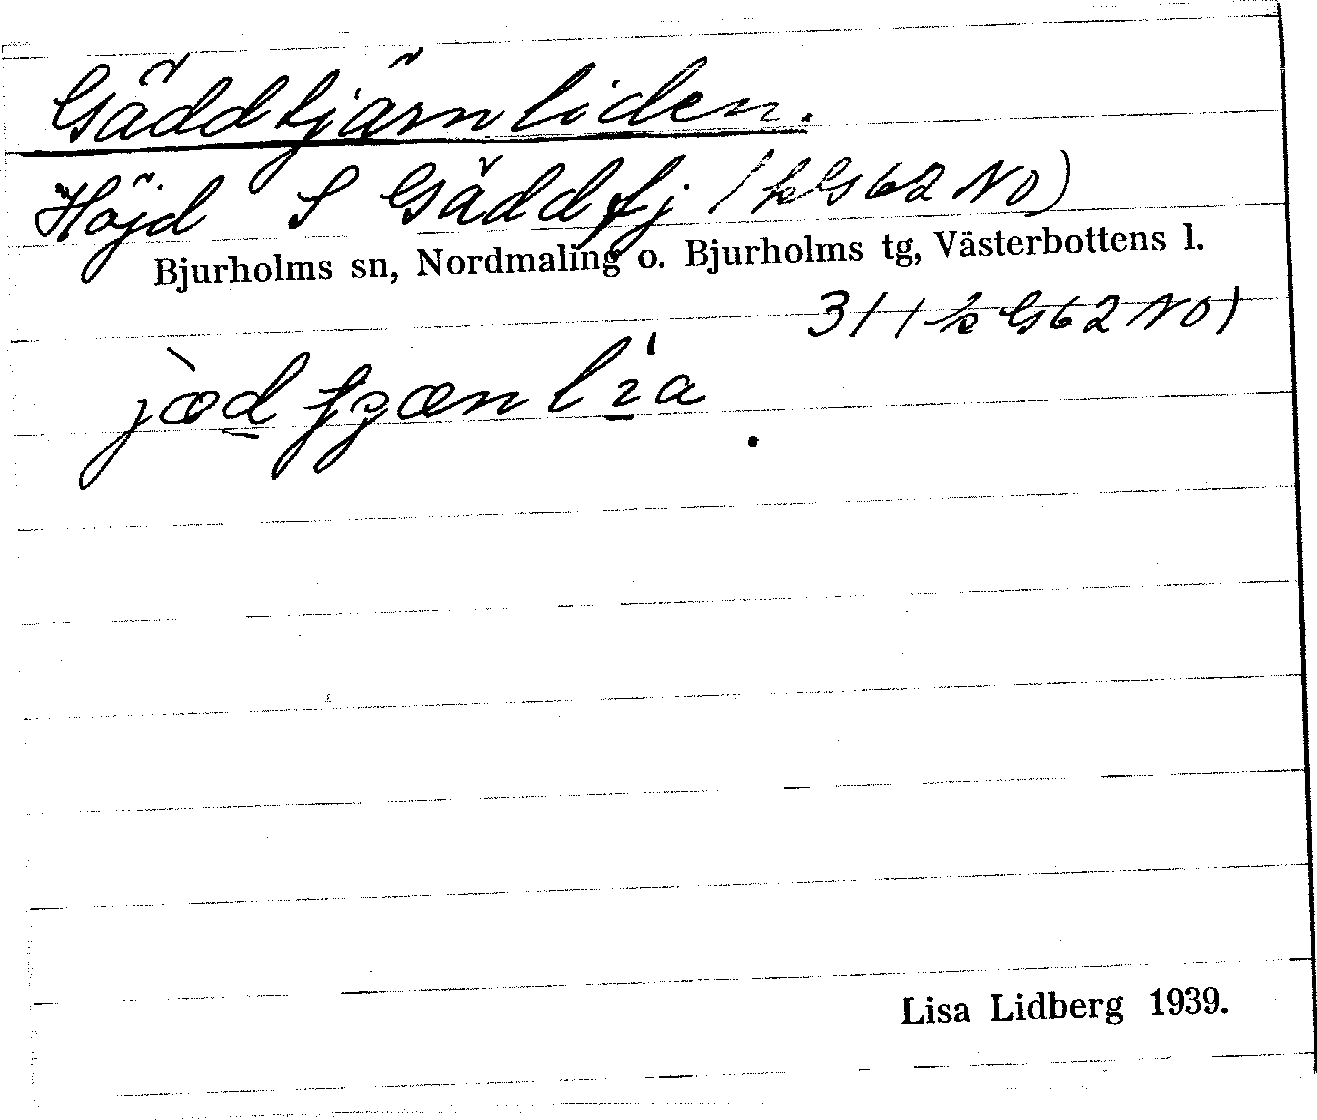 Gäddtjärnliden.
Höjd S Gäddtj /k G62 NO)
Bjurholms sn, Nordmaling o. Bjurholms tg, Västerbottens l.
31 /k G62 NO)
Lisa Lidberg 1939.